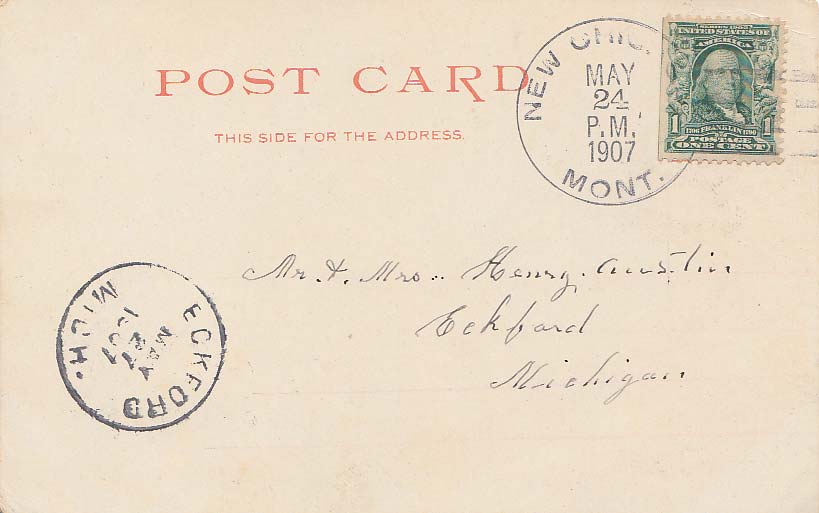 POST CARD
THIS SIDE FOR THE ADDRESS.
NEW CHIC
MAY
24
P.M.
1907
MONT.
SERIES 1902
UNITED STATES OF
AMERICA
1706 FRANKLIN 1790
1 1
POSTAGE
ONE CENT
Mr. & Mrs. Henry Austin
Eckford
Michigan
ECKFORD
MICH.
MAY